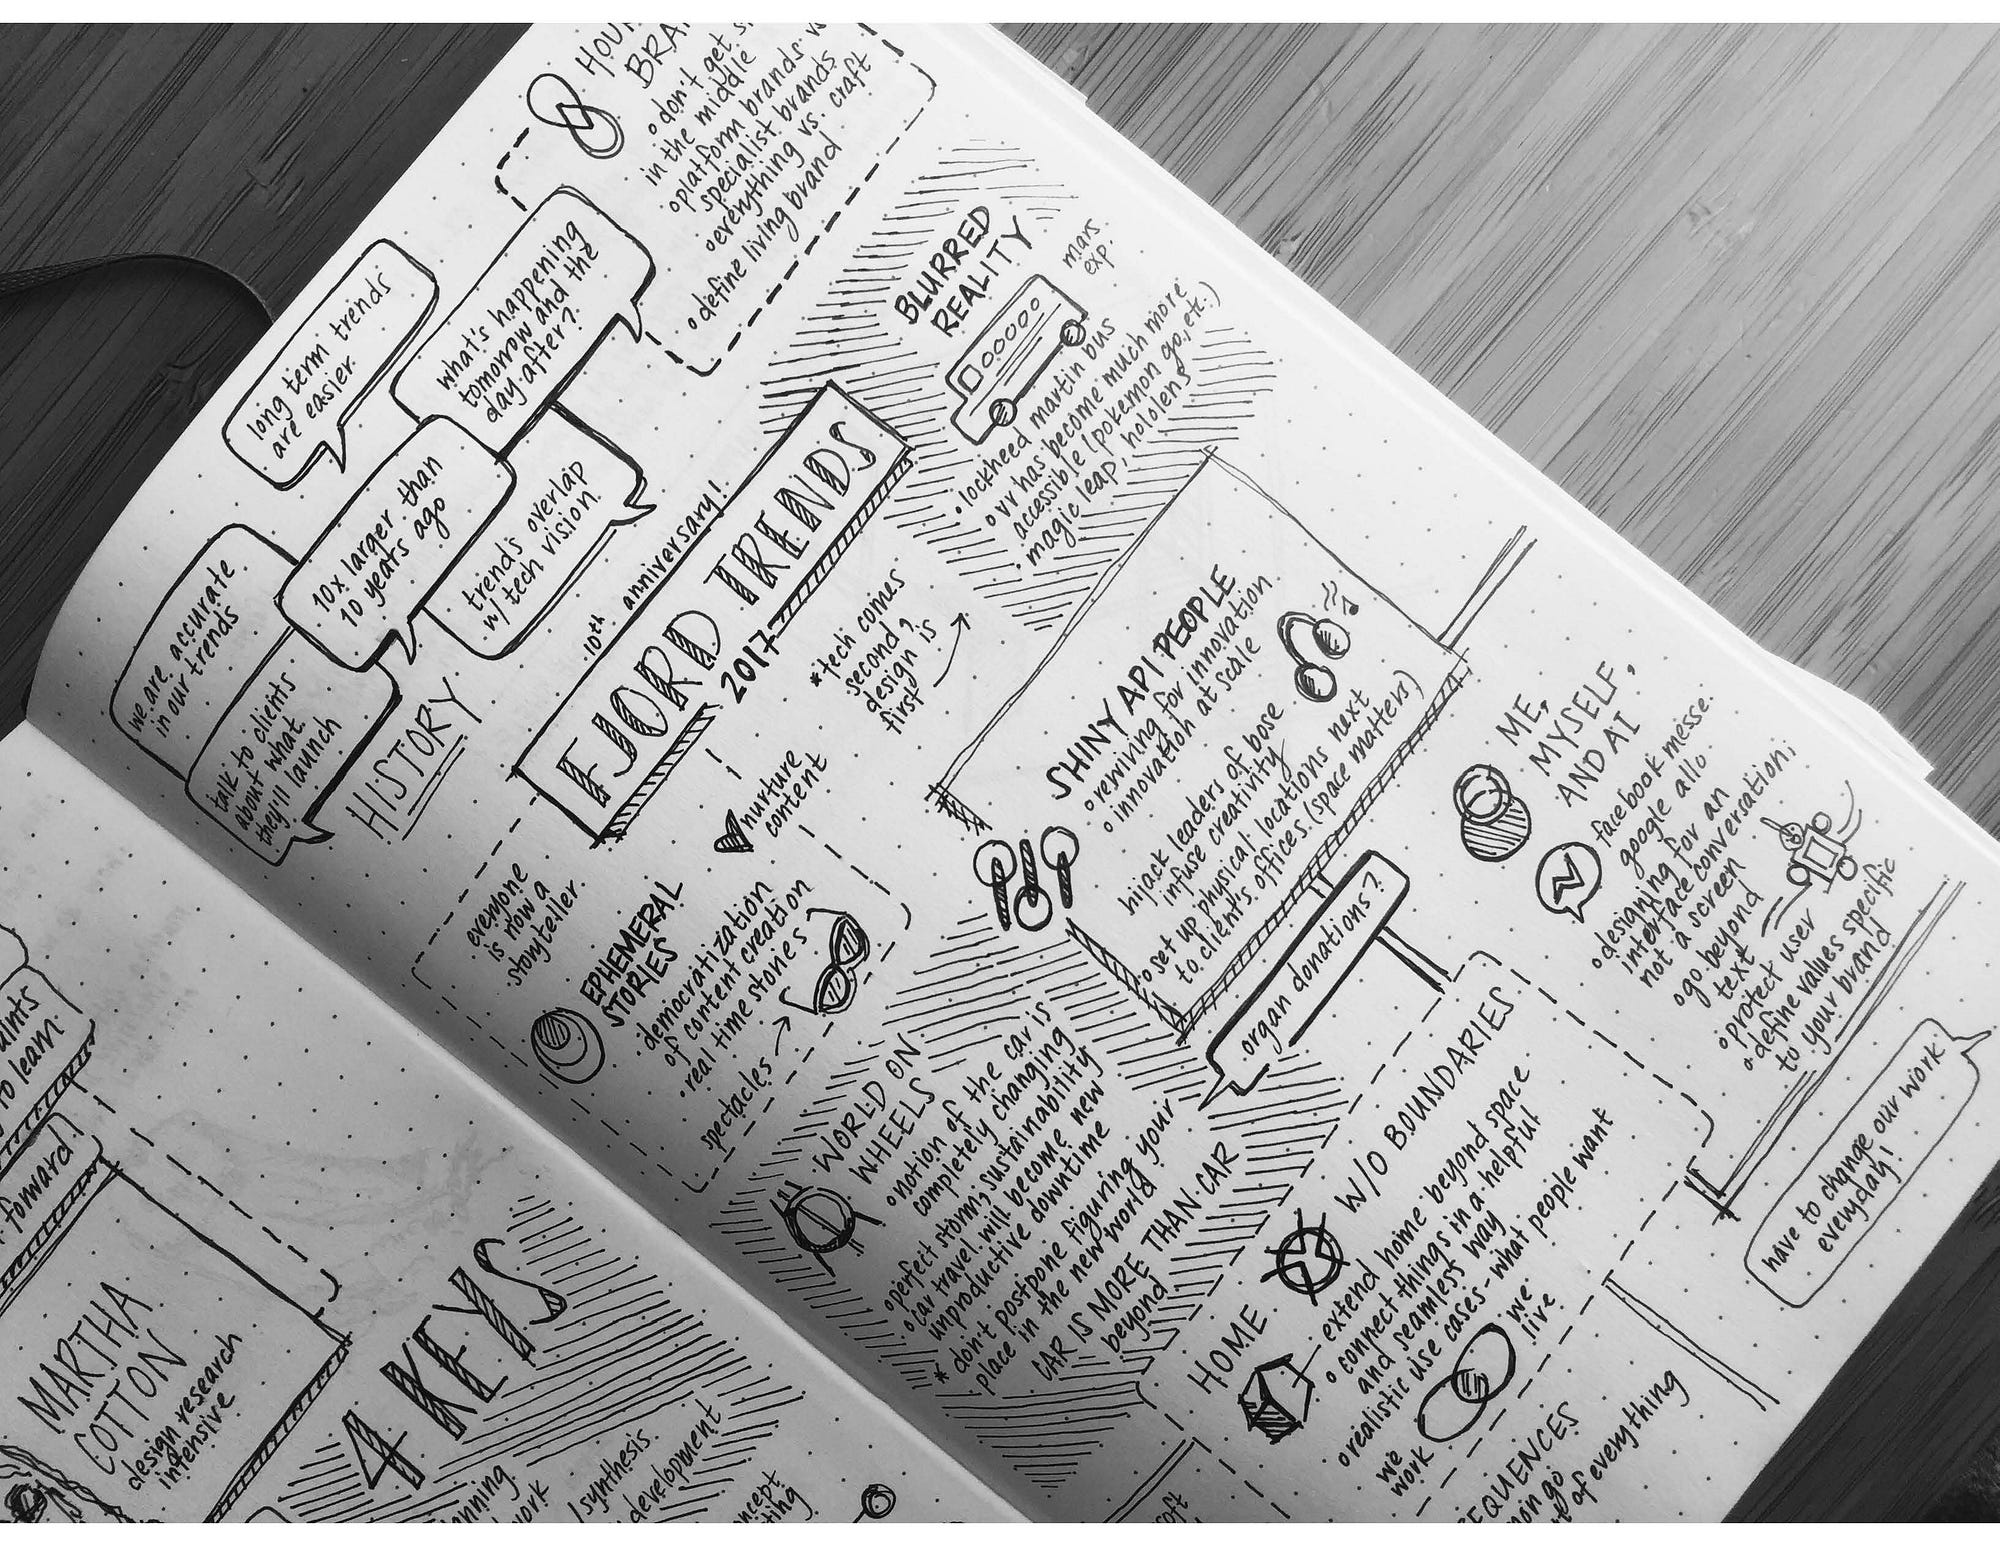 don't get
in the middle
platform brands vs
specialist brands
everything vs. craft
define living brand
long term trends
are easier.
what's happening
tomorrow and the
day after?
we are accurate
in our trends
10x larger than
10 years ago
trends overlap
w/ tech vision.
talk to clients
about what
they'll launch
HISTORY
10th anniversary!
FJORD TRENDS
2017
BLURRED
REALITY
mars
exp.
lockheed martin bus
vr has become much more
accessible (pokemon go, etc.)
magic leap, hololens
*tech comes
second,
design is
first
nurture
content
everyone
is now a
storyteller.
EPHEMERAL
STORIES
democratization
of content creation
real time stories
spectacles
SHINY API PEOPLE
rewiving for innovation
innovation at scale
hijack leaders of bose
infuse creativity
set up physical locations next
to client's offices (space matters)
organ donations?
ME,
MYSELF,
AND AI
facebook messe.
google allo
designing for an
interface conversation,
not a screen
go beyond
text
protect user
define values specific
to your brand
have to change our work
everyday!
WORLD ON
WHEELS
notion of the car is
completely changing
perfect storm; sustainability
car travel will become new
unproductive downtime
* don't postpone figuring your
place in the new world
CAR IS MORE THAN CAR
beyond
HOME W/O BOUNDARIES
extend home beyond space
connect things in a helpful
and seamless way
realistic use cases - what people want
we
work
we
live
of everything
to learn
forward
MARTHA
COTTON
design research
intensive
4 KEYS
/synthesis
development